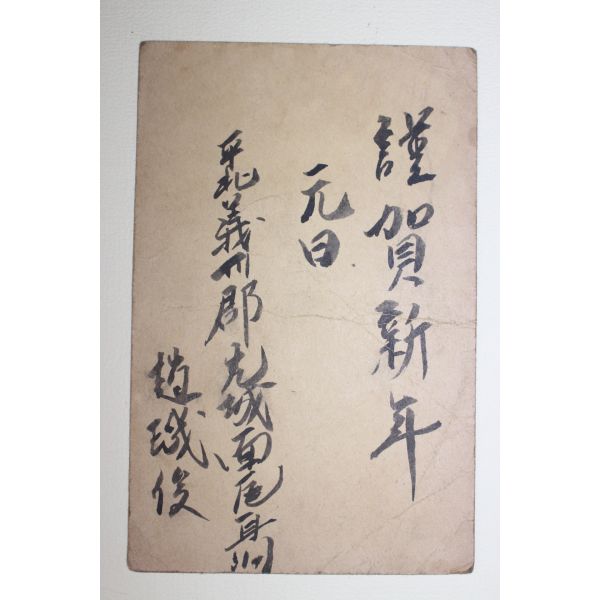 謹賀新年
元日
平北義州郡光城面
趙 俊